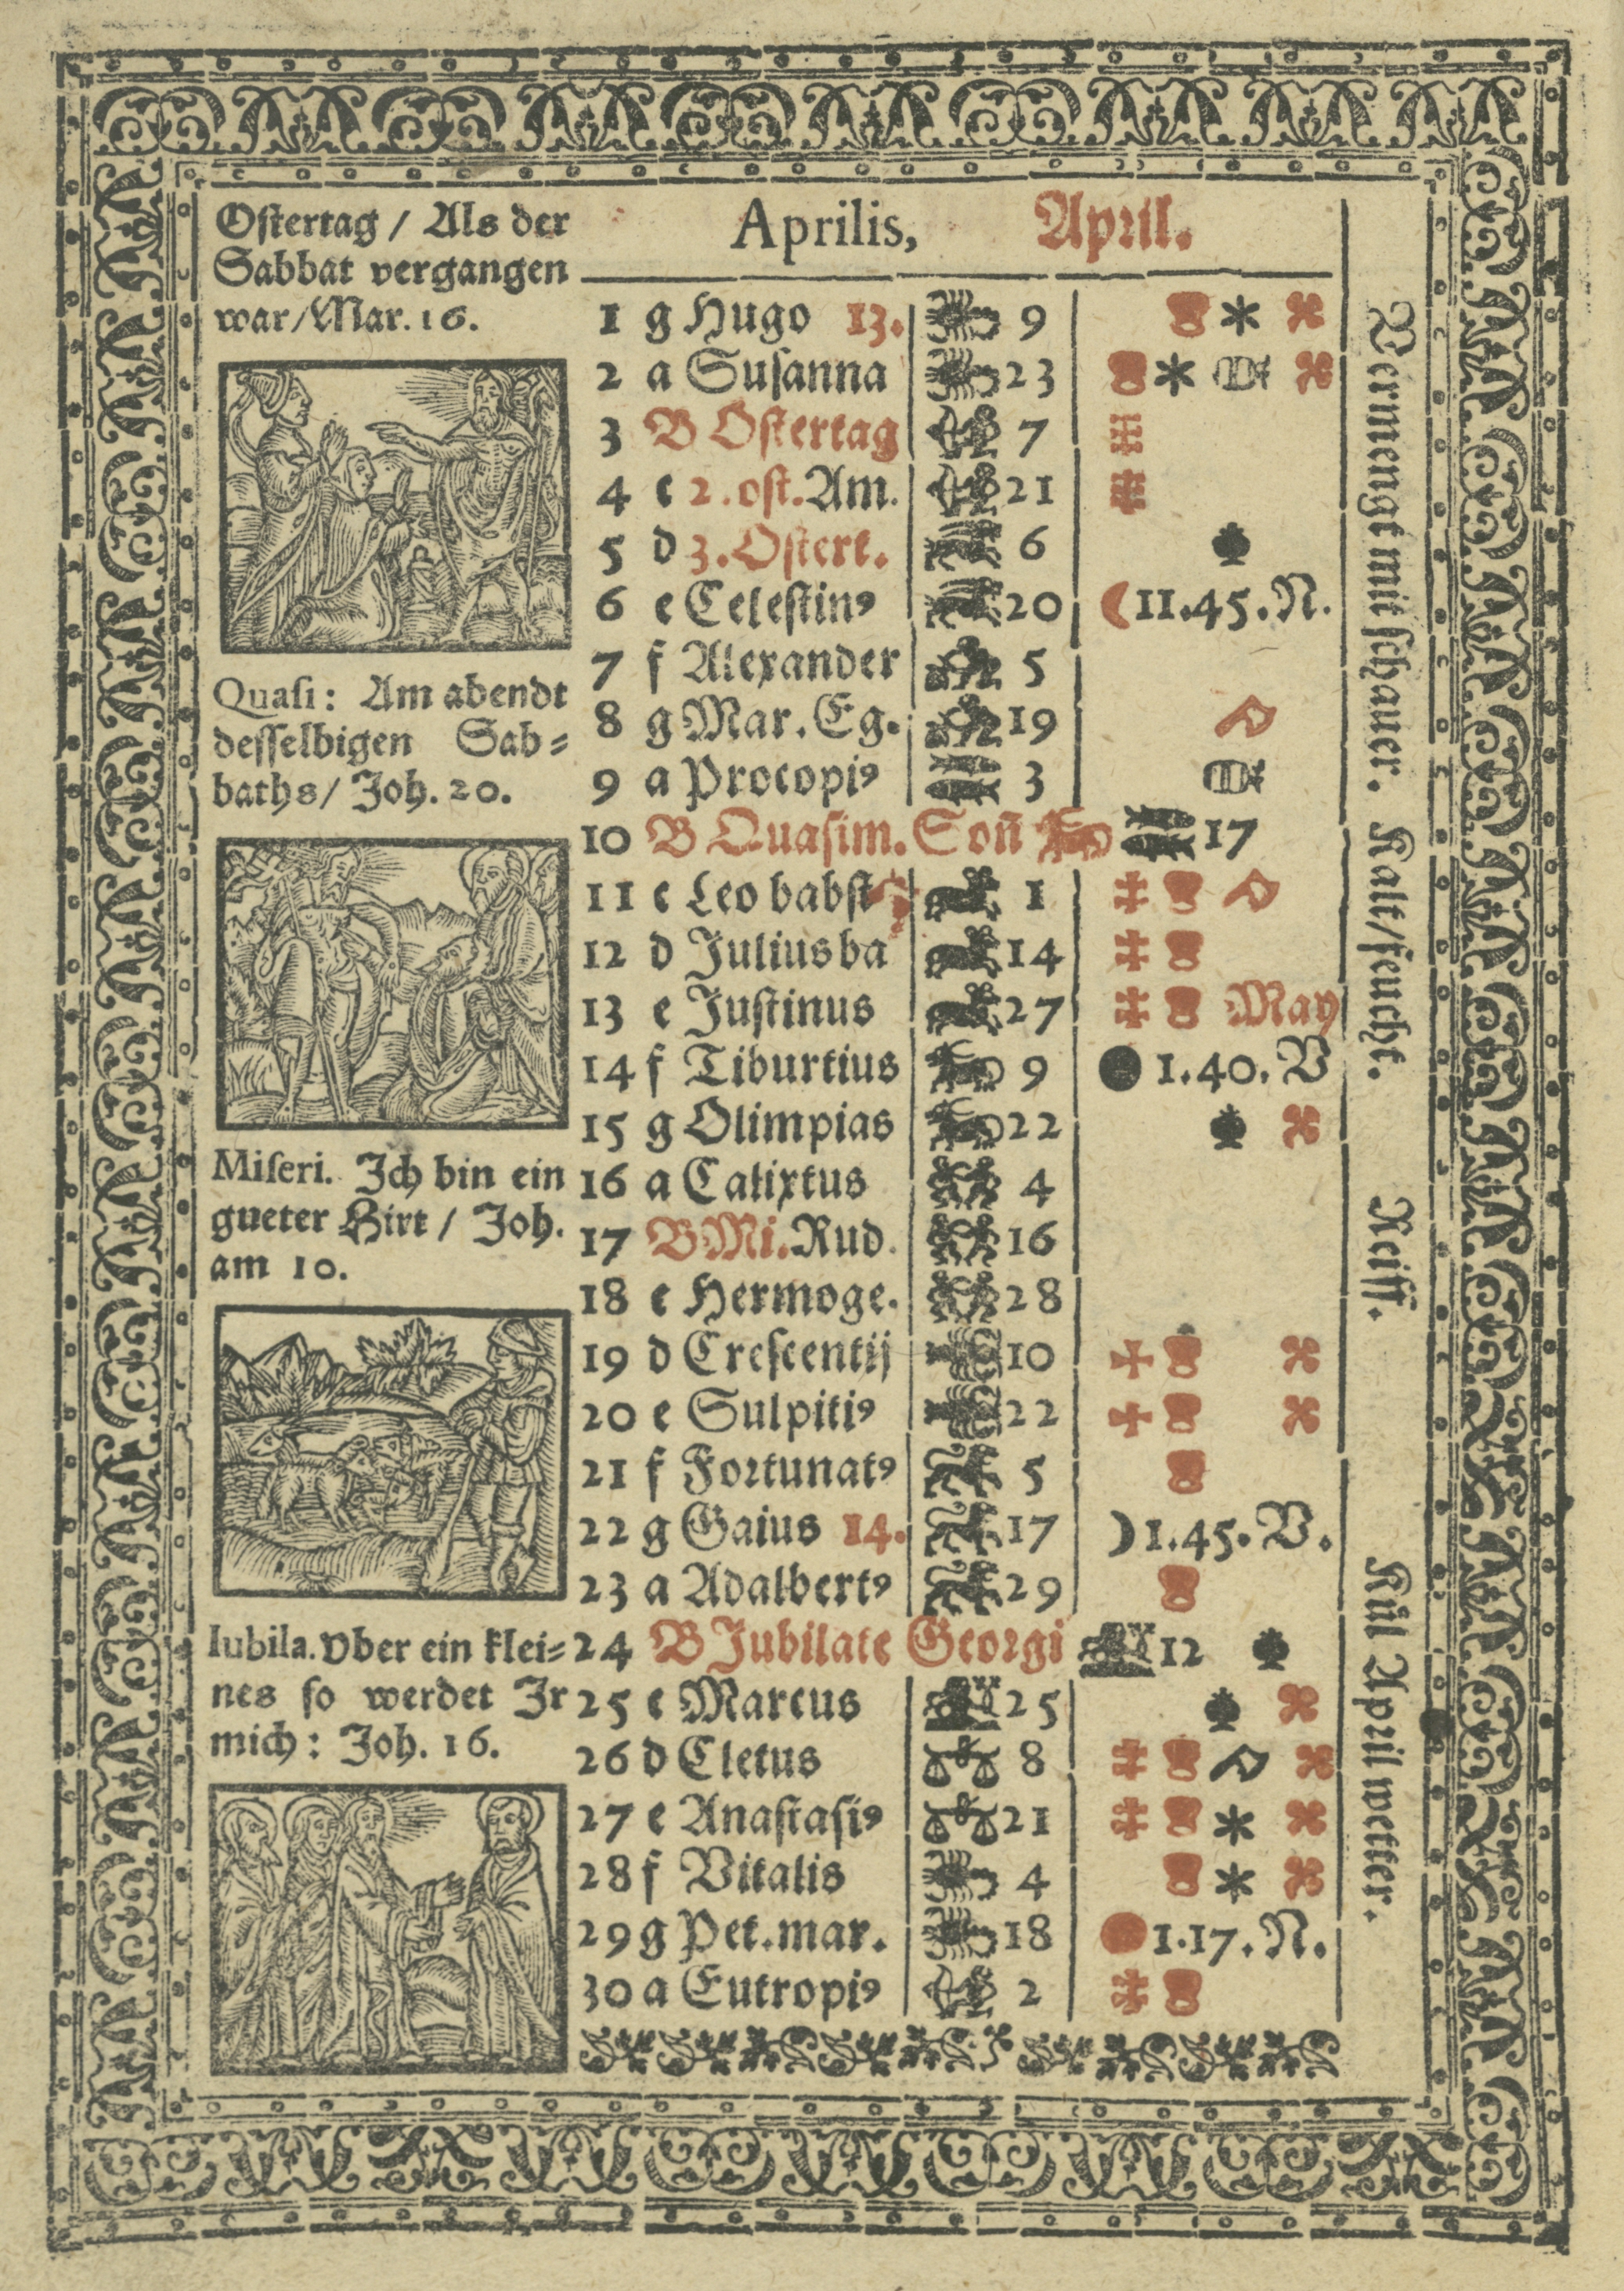 Ostertag / Als der
Sabbat vergangen
war / Mar. 16.
Quasi: Am abendt
desselbigen Sab=
baths / Joh. 20.
Miseri. Ich bin ein
gueter Hirt / Joh.
am 10.
Iubila. Vber ein klei=
nes so werdet Jr
mich: Joh. 16.
Aprilis, April.
1 g Hugo 13. 9
2 a Susanna 23
3 B Ostertag 7
4 c 2. ost. Am. 21
5 d 3. Ostert. 6
6 e Celestinꝰ 20 11.45. N.
7 f Alexander 5
8 g Mar. Eg. 19
9 a Procopiꝰ 3
10 B Quasim. Soñ 17
11 c Leo babst 1
12 d Julius ba 14
13 e Justinus 27 May
14 f Tiburtius 9 1.40. V
15 g Olimpias 22
16 a Calixtus 4
17 B Mi. Rud. 16
18 c Hermoge. 28
19 d Crescentij 10
20 e Sulpitiꝰ 22
21 f Fortunatꝰ 5
22 g Gaius 14. 17 1.45. V.
23 a Adalbertꝰ 29
24 B Jubilate Georgi 12
25 c Marcus 25
26 d Cletus 8
27 e Anastasiꝰ 21
28 f Vitalis 4
29 g Pet. mar. 18 1.17. N.
30 a Eutropiꝰ 2
Vermengt mit schauer. Kalt / feucht. Reiff. Kül April wetter.